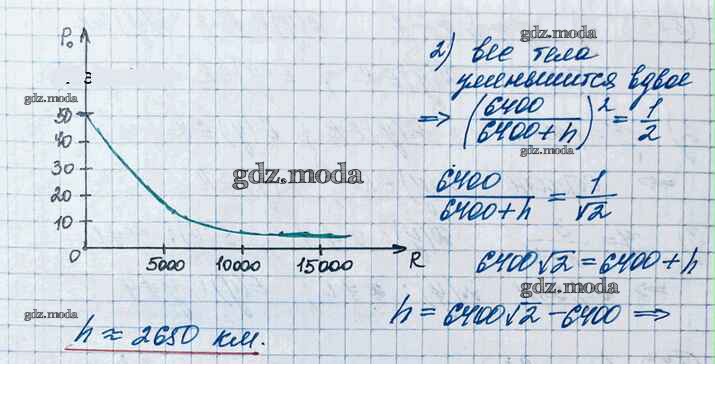 P₀
gdz.moda
50
40
30
20
10
0
5000 10000 15000 R
gdz.moda
gdz.moda
gdz.moda
2) все тела
уменьшится вдвое
=> (6400/(6400+h))² = 1/2
gdz.moda
6400/(6400+h) = 1/√2
6400√2 = 6400 + h
gdz.moda
h = 6400√2 - 6400 =>
gdz.moda
h ≈ 2650 км.
gdz.moda